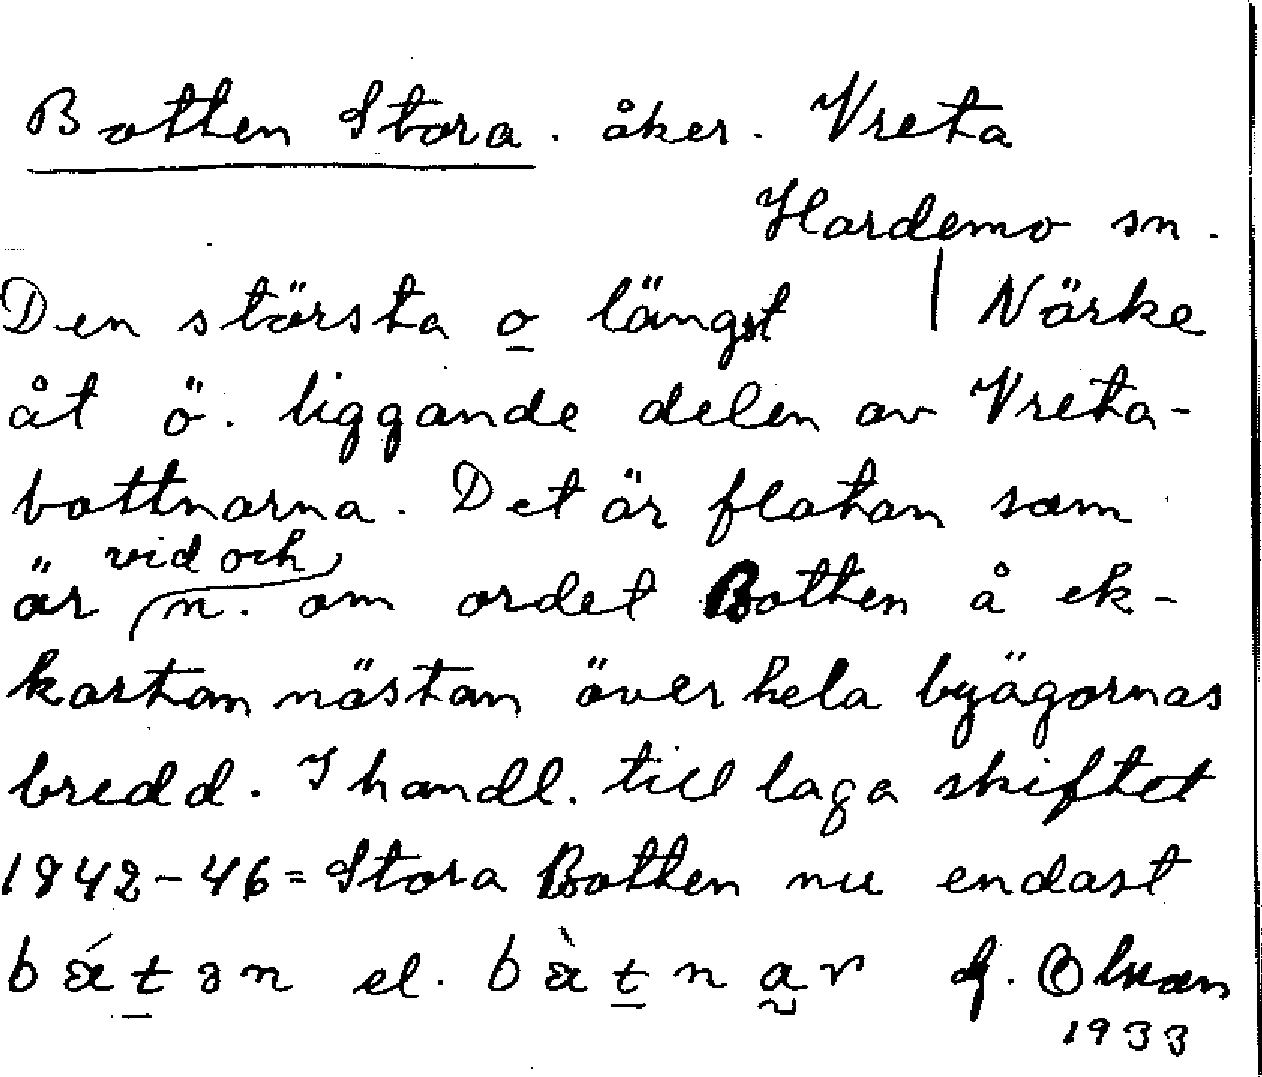 Botten Stora. åker. Vreta
Hardemo sn.
Den största o längst | Närke
åt ö. liggande delen av Vreta-
bottnarna. Det är flatan som
är vid och n. om ordet Botten å ek-
kartan nästan över hela byägornas
bredd. I handl. till laga skiftet
1842-46 = Stora Botten nu endast
el.
1933